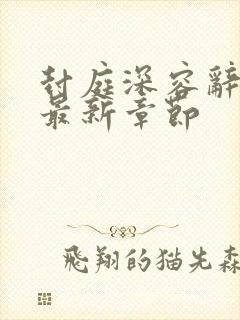 封庭深容辭
最新章節
飛翔的猫先森